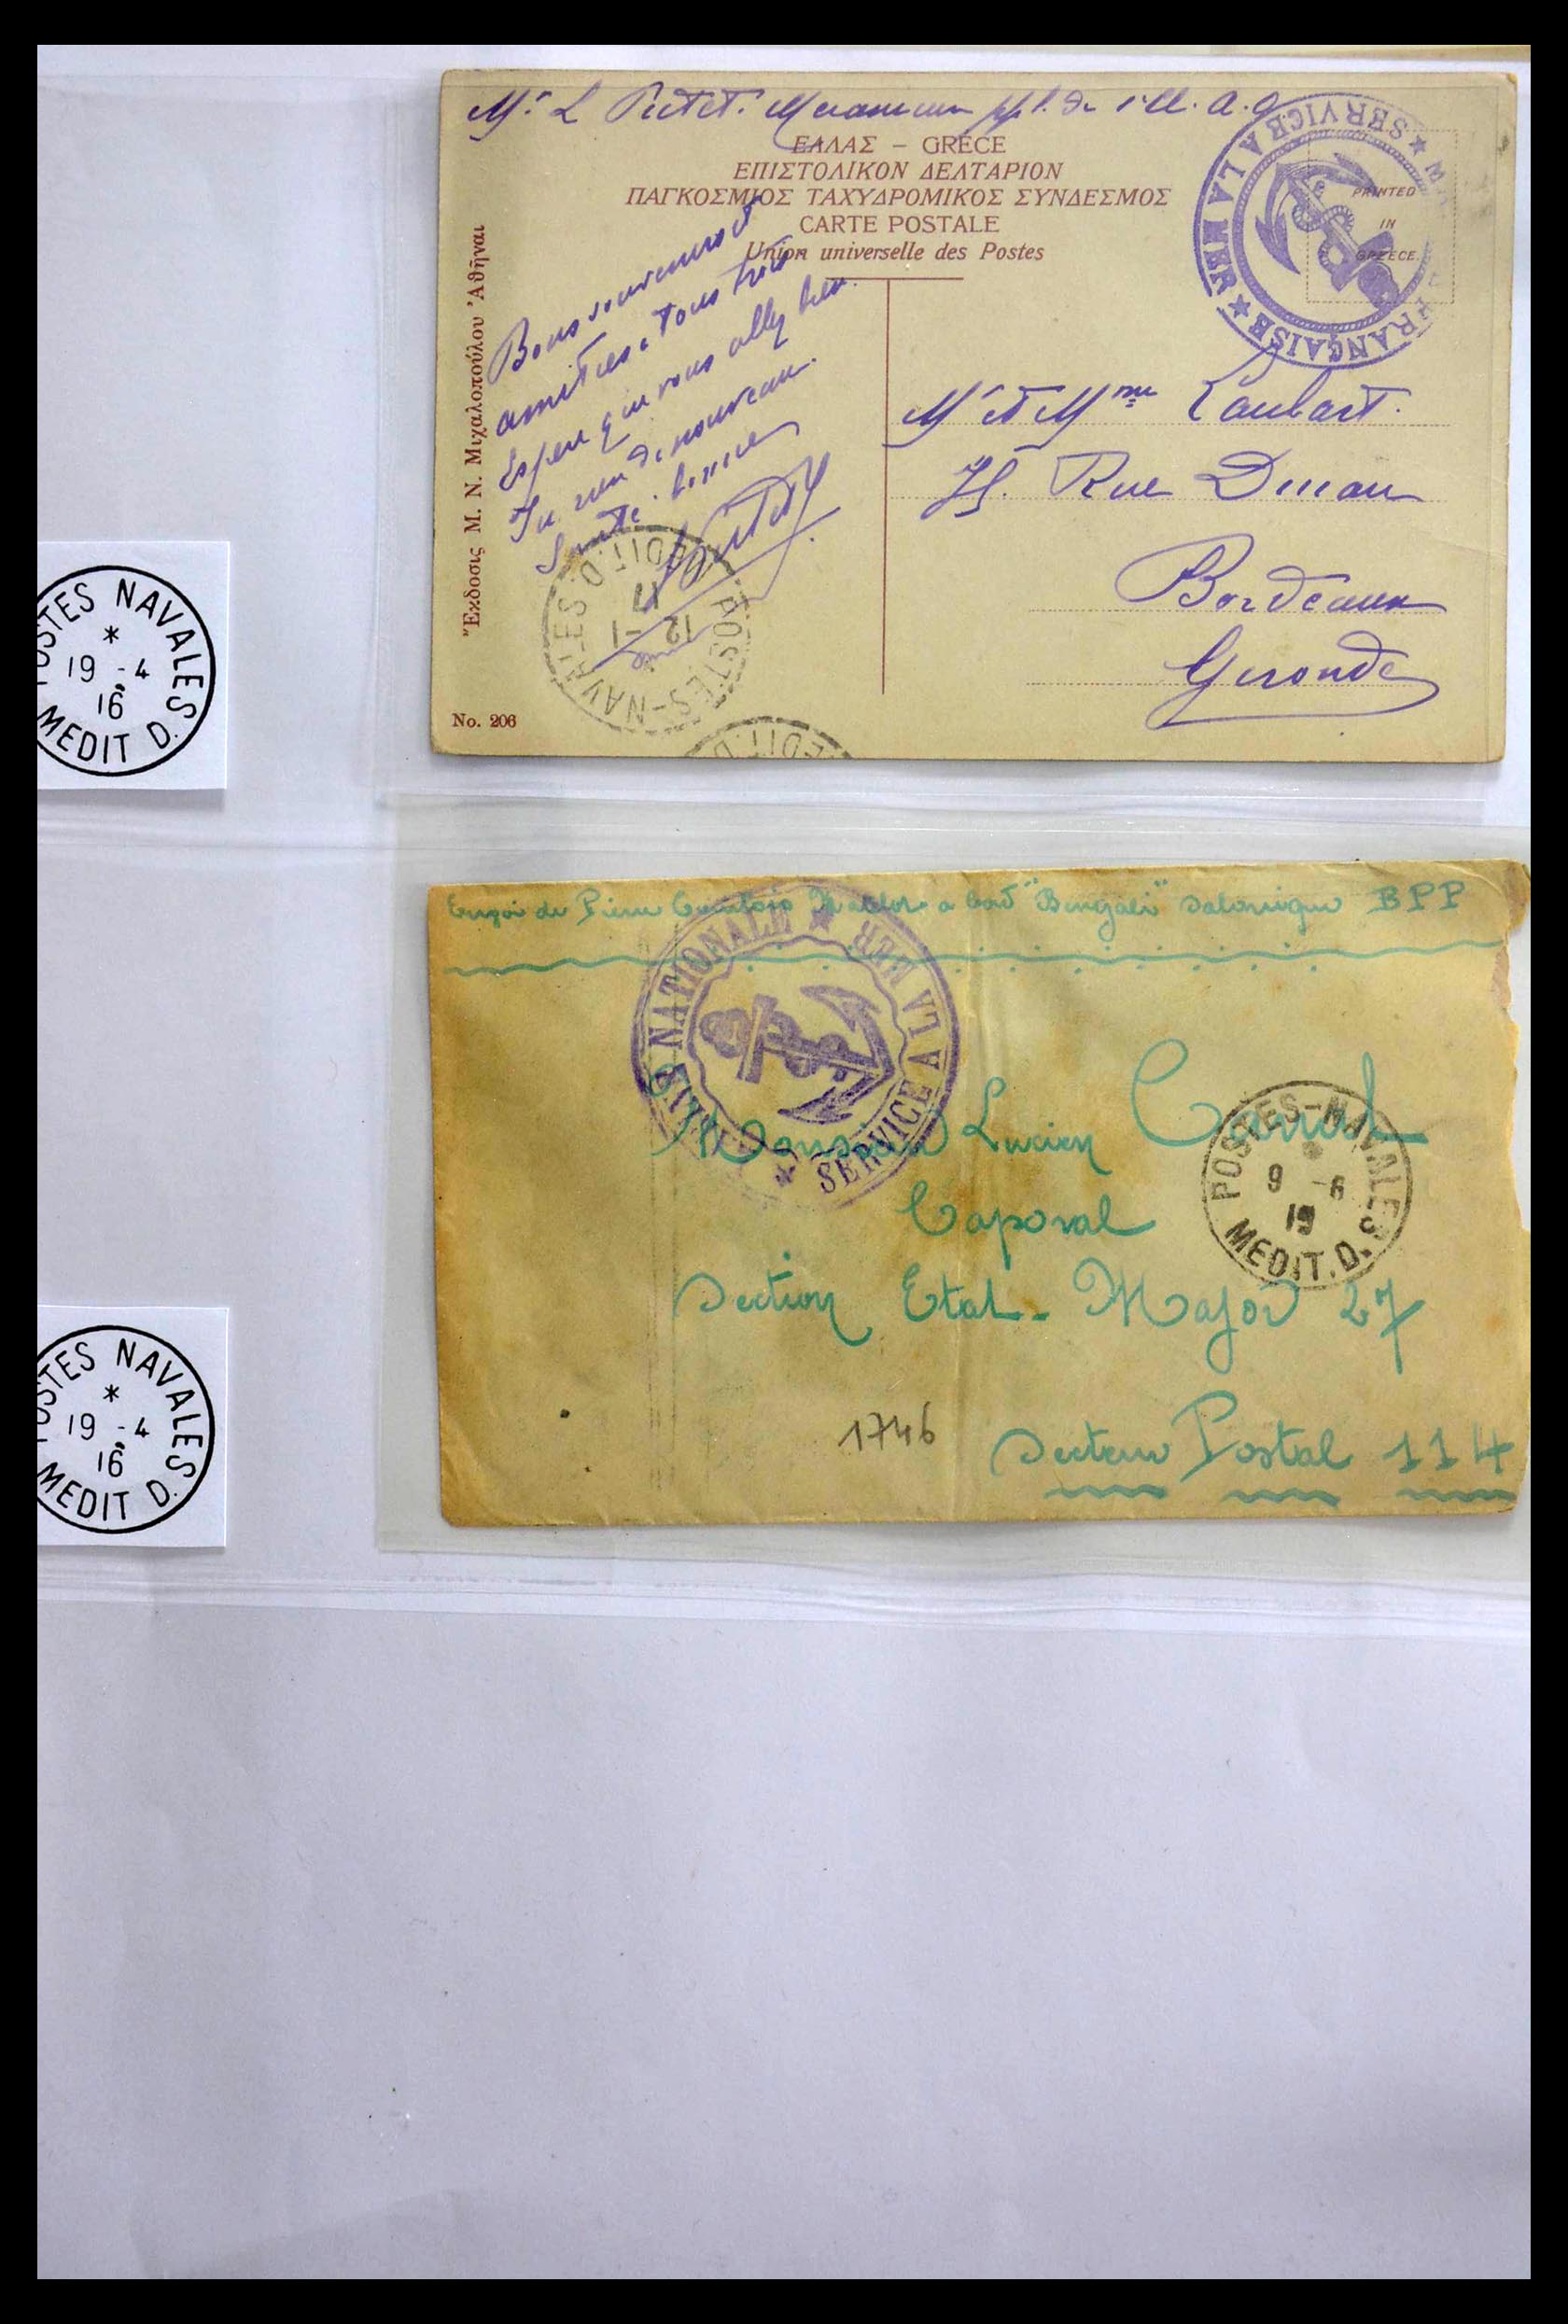 Mr. L Pictet.
ΕΛΛΑΣ – GRÈCE
ΕΠΙΣΤΟΛΙΚΟΝ ΔΕΛΤΑΡΙΟΝ
ΠΑΓΚΟΣΜΙΟΣ ΤΑΧΥΔΡΟΜΙΚΟΣ ΣΥΝΔΕΣΜΟΣ
CARTE POSTALE
Union universelle des Postes
★ SERVICE A LA MER ★
FRANÇAISE
PRINTED
IN
GREECE.
Ἔκδοσις Μ. Ν. Μιχαλοπούλου Ἀθῆναι
No. 206
Bons souvenirs et
amitiés a tous trois
Espere que vous allez bien.
de nouveau.
Santé. bonne
Mr et Mme
Rue
Bordeaux
Gironde
POSTES-NAVALES
12 -1
17
MEDIT.D.
MEDIT.D
POSTES NAVALES
*
19 -4
16
MEDIT D.
Envoi de Pierre Matelot a bord "Bengali" Salonique BPP
NATIONALE ★
★ SERVICE A LA MER
Monsieur Lucien
Caporal
Section Etat-Major 27
Secteur Postal 114
1746
POSTES-NAVALES
9 -6
19
MEDIT.D.
POSTES NAVALES
*
19 -4
16
MEDIT D.